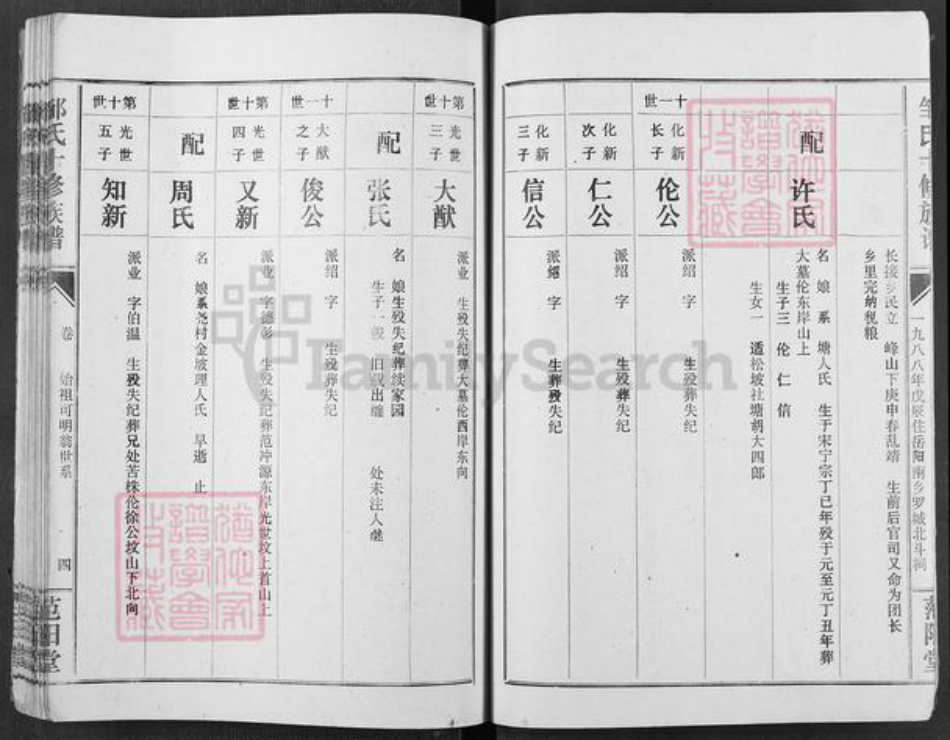 一九八八年戊辰住岳阳南乡罗城北斗洞
长接乡民立 峰山下庚申春乱靖 生前后官司又命为团长
乡里完纳税粮
配
许氏
名 娘 系 塘人氏 生于宋宁宗丁巳年殁于元至元丁丑年葬
大墓伦东岸山上
生子三 伦 仁 信
生女一 适松坡社塘胡大四郎
十一世
化新
长子
伦公
派绍 字 生殁葬失纪
化新
次子
仁公
派绍 字 生殁葬失纪
化新
三子
信公
派绍 字 生葬殁失纪
第十世
光世
三子
大猷
派业 生殁失纪葬大墓伦西岸东向
配
张氏
名 娘生殁失纪葬续家园
生子一俊 旧载出继 处未注人继
十一世
大猷
之子
俊公
派绍 字 生殁葬失纪
第十世
光世
四子
又新
派业 字德彰 生殁失纪葬范冲源东岸光世坟上首山上
配
周氏
名 娘系尧村金坡理人氏 早逝 止
第十世
光世
五子
知新
派业 字伯温 生殁失纪葬兄处苦株伦徐公坟山下北向
邹氏十修族谱
卷 始祖可明翁世系 四
范阳堂
FamilySearch